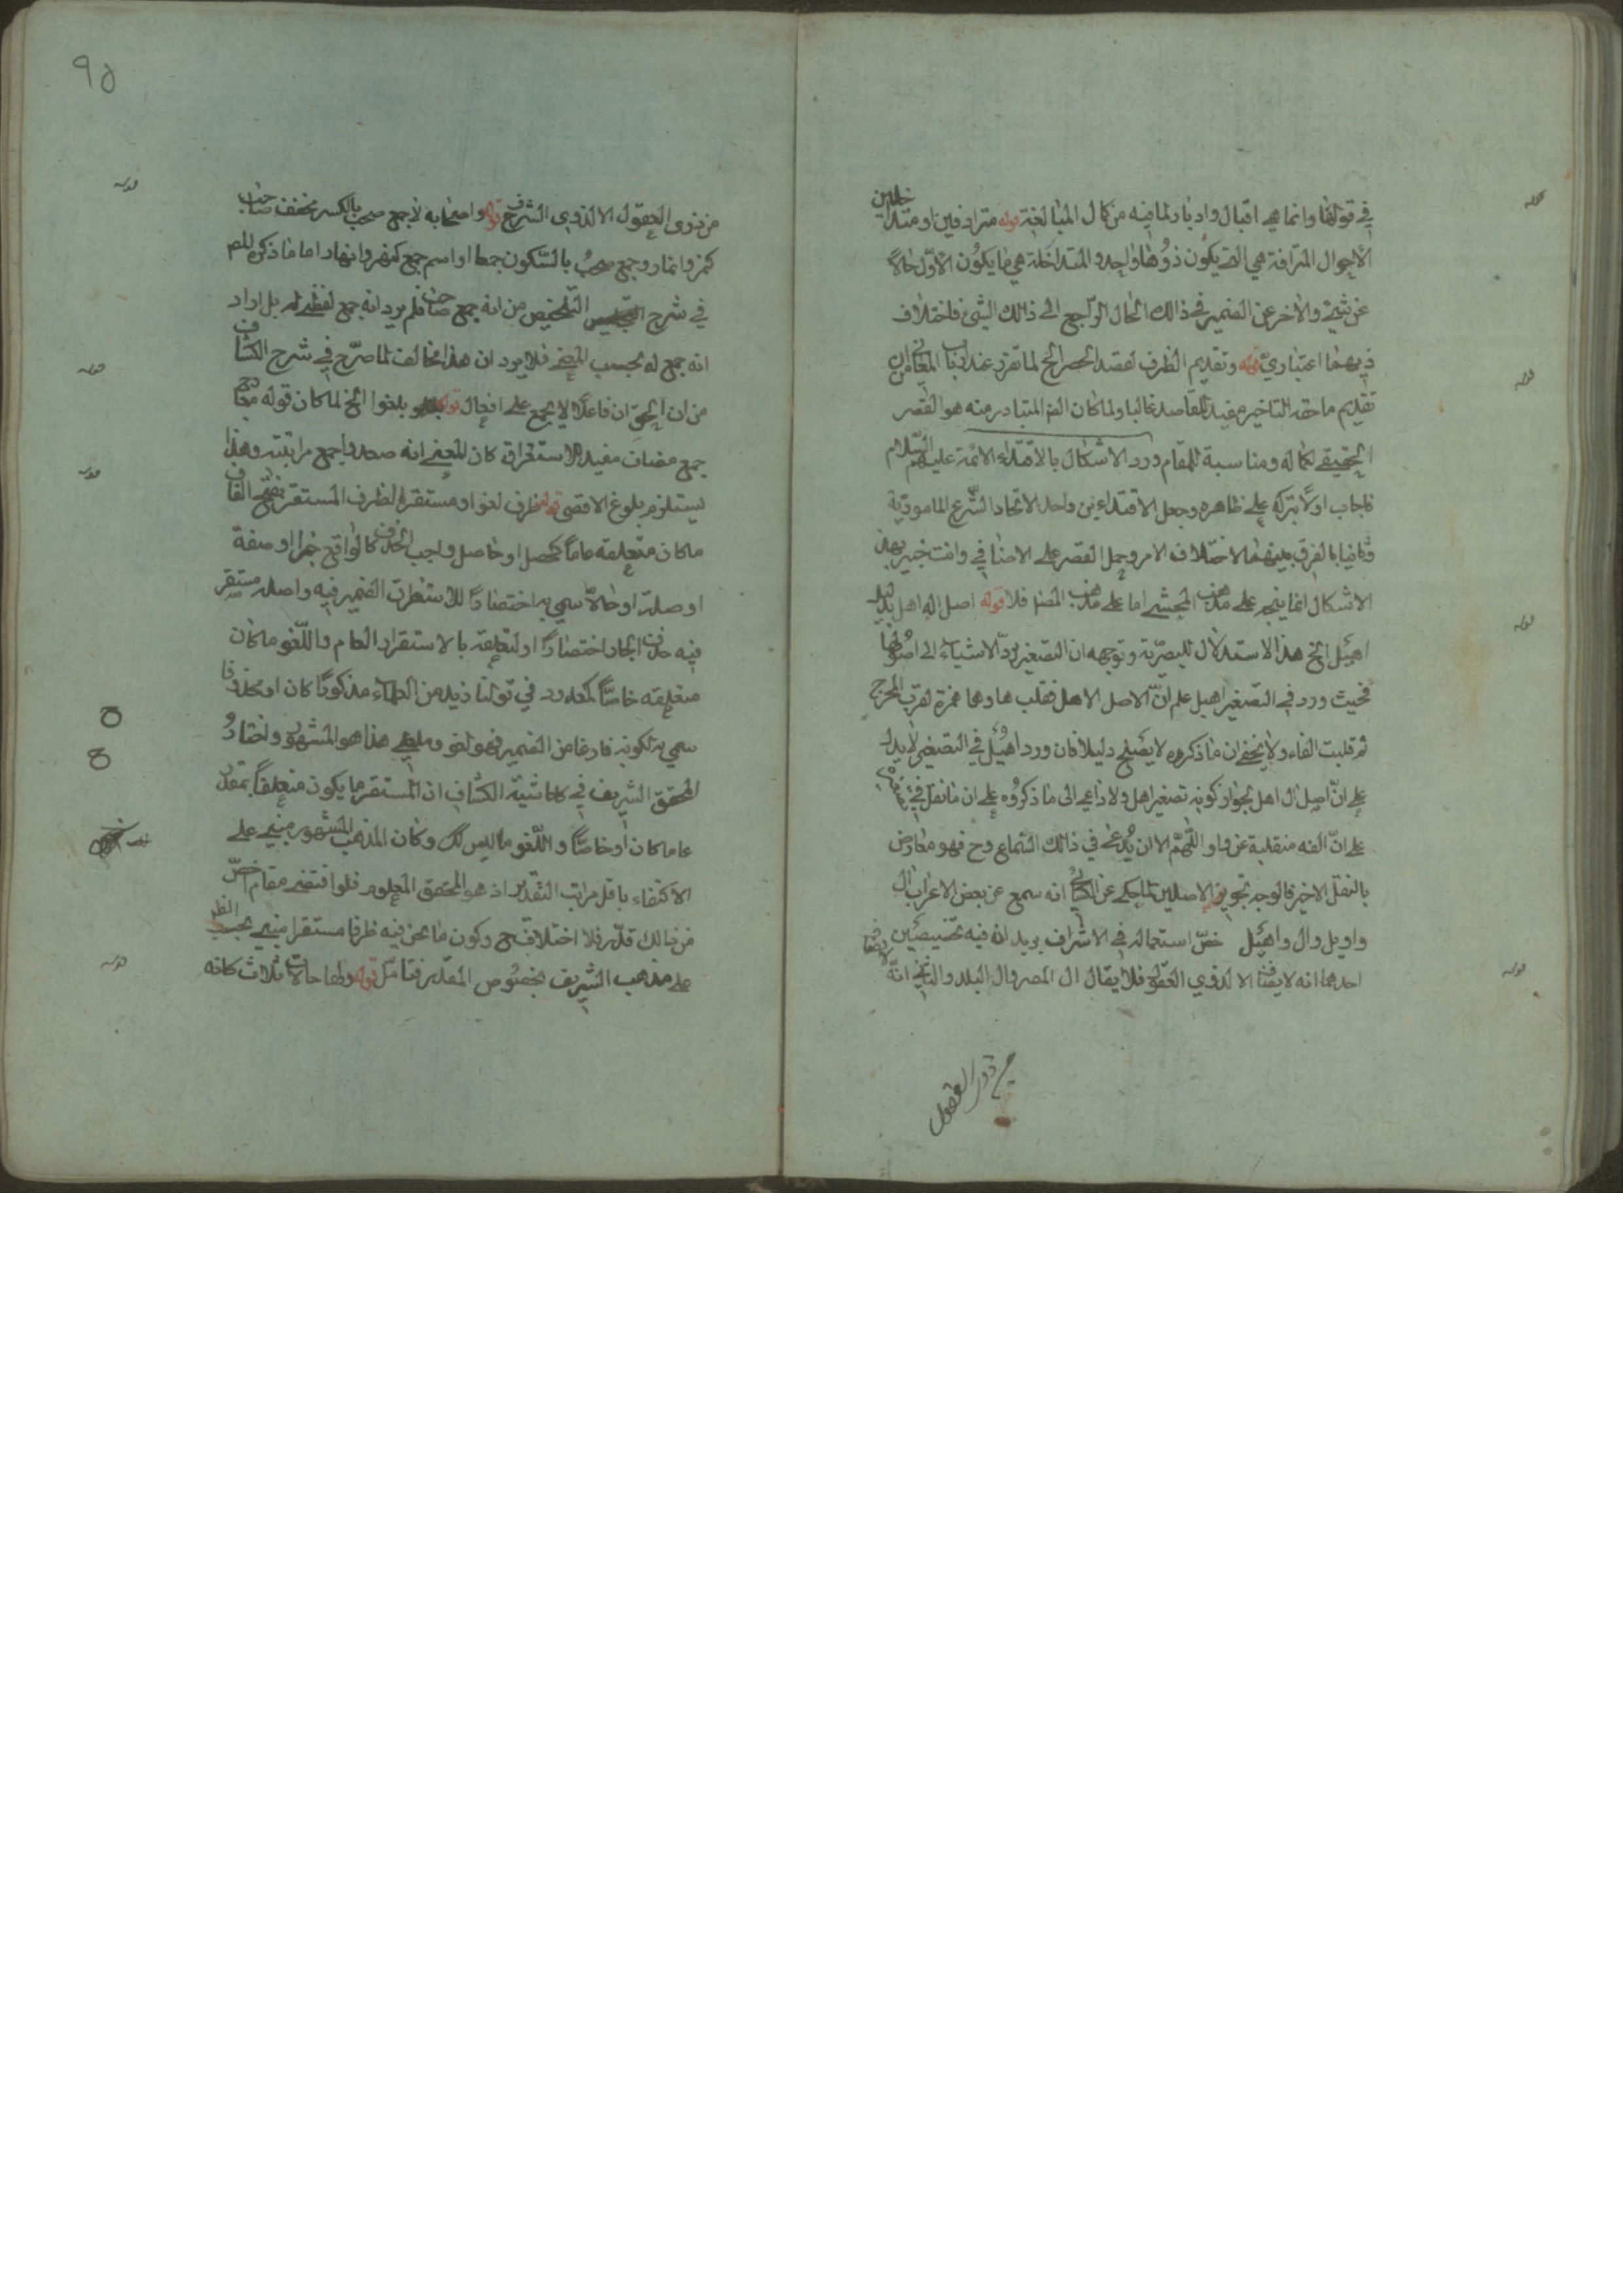 في قولها وانما هي اقبال وادبار لما فيه من كمال المبالغة قوله مترادفين او متداخلين
الاحوال المترافة هي التي يكون ذوها واحد والمتداخلة هي ما يكون الاول حالا
عن شيئ والاخر عن الضمير في ذالك الحال الراجع الى ذالك الشئ فاختلاف
ذيهما اعتباري قوله وتقديم الظرف لقصد الحصر الخ لما تقرر عند ارباب المعاني من ان
تقديم ما حقه التاخير مفيد للقاصد غالبا ولما كان القصر المتبادر منه هو القصر
الحقيقي لكماله ومناسبة للمقام ورد الاشكال بالاقتداء الائمة عليهم السلام
فاجاب اولا بتركه على ظاهره وجعل الاقتداءين واحد الاتحاد الشرع المامور به
وثانيا بالفرق بينهما لاختلاف الامر وحمل القصر على الاضافي وانت خبير بهذا
الاشكال انما ينجر على مذهب المحشي اما على مذهب المصنف فلا قوله اصل اله اهل بدليل
اهيل الخ هذا الاستدلال للبصرية وتوجيهه ان التصغير يرد الاشياء الى اصولها
فحيث ورد في التصغير اهيل علم ان الاصل الاهل فقلب هاوها همزة لقرب المخرج
ثم قلبت الفاء ولا يخفى ان ما ذكروه لا يصلح دليلا فان ورد اهيل في التصغير لا يدل
على ان اصل ال اهل لجواز كونه تصغير اهل ولا داعي الى ما ذكروه على ان ما نقل في
على ان الفه منقلبة عن واو اللهم الا ان يدعى في ذالك السماع وح فهو معارض
بالنقل الاخير فالوجه تجويز الاصلين لما حكى عن الكسائي انه سمع عن بعض الاعراب ال
واويل وال واهيل خص استعماله في الاشراف يريد ان فيه تخصيصين
احدهما انه لا يضاف الا لذوي العقول فلا يقال ال المصر وال البلد والثاني انه لا يضاف
من ذوي العقول
من ذوى العقول الا لذوى الشرف قوله واصحابه لا جمع صحب بالكسر مخفف صاحب
كنمر وانمار وجمع صحب بالسكون جمعا او اسم جمع كنهر وانهار اما ما ذكره المص
في شرح التلخيص من انه جمع صاحب فلم يرد انه جمع لفظي له بل اراد
انه جمع له بحسب المعنى فلا يرد ان هذا مخالف لما صرح في شرح الكشاف
من ان الحق ان فاعلا لا يجمع على افعال قوله بلغوا الخ لما كان قوله معارج
جمع مضاف مفيد الاستغراق كان المعنى انه صعدوا جميع مراتبه وهذا
يستلزم بلوغ الاقصى قوله ظرف لغو او مستقر الظرف المستقر بفتح القاف
ماكان متعلقه عاما كحصل او حاصل واجب الحذف كالواقع خبرا او صفة
او صلة او حالا سمي به اختصارا لاستقرار الضمير فيه واصله مستقر
فيه حذف الجار اختصارا او لتعلقه بالاستقرار العام واللغو ماكان
متعلقه خاصا كمعدود في قولنا زيد من العلماء مذكورا كان او محذوفا
سمي به لكونه فارغا من الضمير فهو لغو وملغى هذا هو المشهور واختار
المحقق الشريف في حاشية الكشاف ان المستقر ما يكون متعلقا بمقدر
عاما كان او خاصا واللغو ما ليس كك وكان المذهب المشهور مبني على
الاكتفاء باقل مراتب التقدير اذ هو المحقق المعلوم فلو اقتضى مقام خص
من ذالك قدر فلا اختلاف ح وكون ما نحن فيه ظرفا مستقرا مبني بحسب النظر
على مذهب الشريف بخصوص المقدر فتامل قوله ولها حالات ثلاث كانه
قوله
قوله
قوله
قوله
قوله
قوله
قوله
قوله